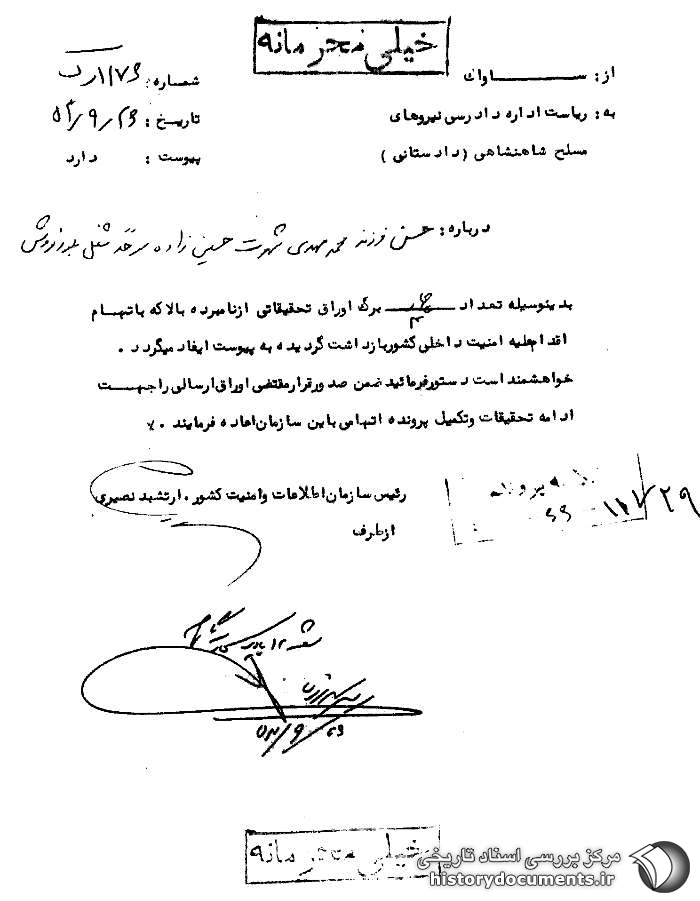 خیلی محرمانه
از: ســـــاواک
شماره:
به: ریاست اداره دادرسی نیروهای
تاریخ: ۵۲/۹/۲۶
مسلح شاهنشاهی (دادستانی)
پیوست: دارد
درباره: حسن فرزند محمد مهدی شهرت حسین زاده شغل بلورفروش
بدینوسیله تعداد چهار برگ اوراق تحقیقاتی ازنامبرده بالاکه باتهـام
۴
اقدام علیه امنیت داخلی کشوربازداشت گردیده به پیوست ایفاد میگردد .
خواهشمند است دستورفرمائید ضمن صدورقرارمقتضی اوراق ارسالی راجهـت
ادامه تحقیقات وتکمیل پرونده اتهامی باین سازمان اعاده فرمایند .٪
رئیس سازمان اطلاعات وامنیت کشور . ارتشبد نصیری
ازطرف
شعبه ۱۲
۵۲/۹/۲۶
خیلی محرمانه
مرکز بررسی اسناد تاریخی
historydocuments.ir